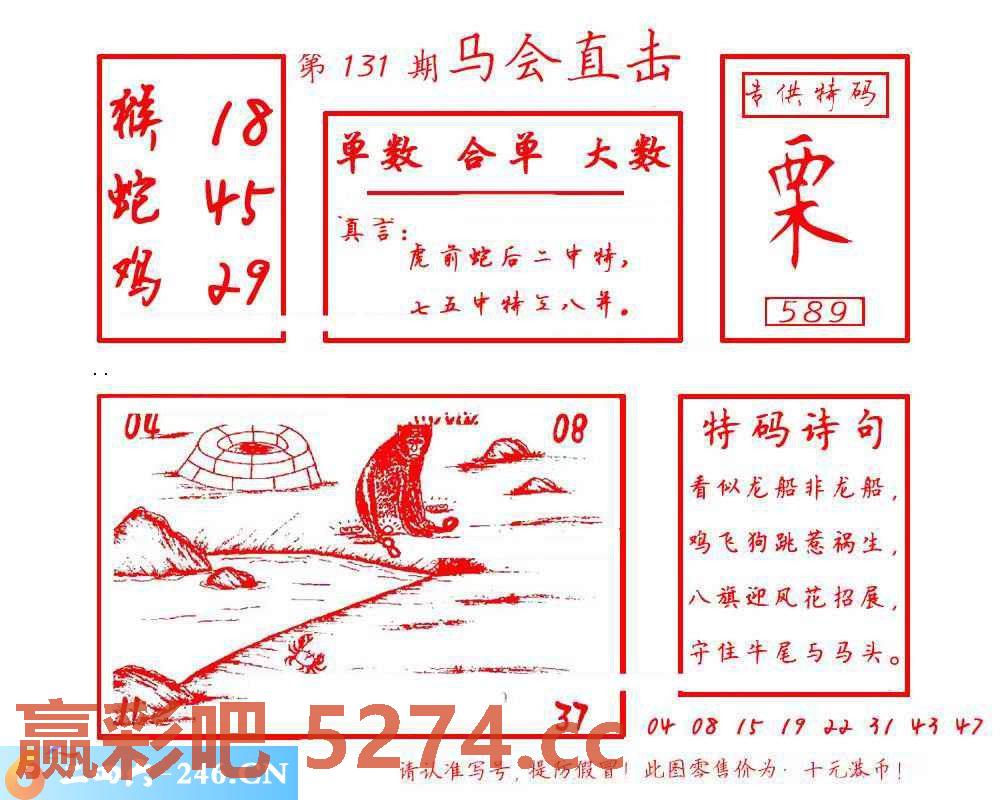 第 131 期 马会直击
猴 18
蛇 45
鸡 29
单数 合单 大数
真言：
虎前蛇后二中特，
七五中特 八算。
专供特码
栗
589
04
08
37
特码诗句
看似龙船非龙船，
鸡飞狗跳惹祸生，
八旗迎风花招展，
守住牛尾与马头。
04 08 15 19 22 31 43 47
赢彩吧 5274.cc
246.CN
请认准写号，提防假冒！此图零售价为：十元港币！